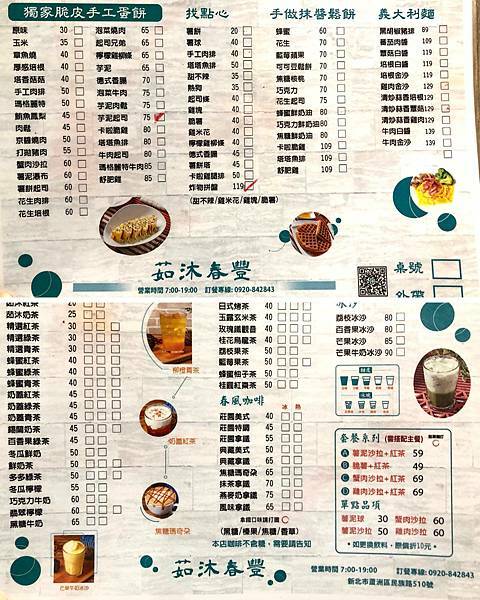 獨家脆皮手工蛋餅
原味 30
玉米 35
章魚燒 40
厚感培根 40
塔香菇菇 40
手工肉排 50
瑪格麗特 50
鮪魚鳳梨 45
肉鬆 45
京醬燒肉 50
打拋豬肉 55
蟹肉沙拉 60
薯泥瀑布 60
薯餅起司 60
花生肉排 60
花生培根 60
泡菜燒肉 65
起司兄弟 65
檸檬雞柳條 65
芋泥 65
德式香腸 70
泡菜牛肉 75
芋泥肉鬆 75
芋泥起司 75
卡啦脆雞 80
塔塔魚排 80
牛肉起司 80
瑪格麗特牛肉 85
舒肥雞 85
找點心
薯餅 20
薯球 40
手工肉排 40
塔塔魚排 40
甜不辣 35
熱狗 35
起司條 40
雞塊 40
脆薯 40
雞米花 40
檸檬雞柳條 40
德式香腸 45
薯餅塔 50
卡啦雞腿排 50
炸物拼盤 119
(甜不辣/雞米花/雞塊/脆薯)
手做抹醬鬆餅
蜂蜜 60
花生 70
藍莓蘋果 70
可可豆鬆餅 70
焦糖核桃 70
巧克力 70
花生起司 75
蜂蜜鮮奶油 80
巧克力鮮奶油 80
焦糖鮮奶油 80
卡啦脆雞 109
塔塔魚排 109
舒肥雞 109
義大利麵
黑胡椒豬排 89
蕃茄肉醬 109
蕈菇白醬 109
培根白醬 119
培根金沙 119
雞肉金沙 119
清炒蒜香培根 129
清炒蒜香蕈菇 129
清炒蒜香雞肉 129
牛肉白醬 139
牛肉金沙 139
茹沐春豐
營業時間 7:00-19:00 訂餐專線: 0920-842843
桌號
外帶
茹沐紅茶 20
茹沐奶茶 25
精選紅茶 30
精選綠茶 30
精選青茶 30
蜂蜜紅茶 40
蜂蜜綠茶 40
蜂蜜青茶 40
奶蓋紅茶 40
奶蓋綠茶 40
奶蓋青茶 40
錫蘭奶茶 40
百香果綠茶 40
冬瓜鮮奶 50
鮮奶茶 50
多多綠茶 50
冬瓜檸檬 45
巧克力牛奶 60
翡翠檸檬 50
黑糖牛奶 60
柳橙青茶
奶蓋紅茶
焦糖瑪奇朵
芒果牛奶冰沙
日式煎茶 40
玉露玄米茶 40
玫瑰鐵觀音 40
桂花烏龍茶 40
荔枝果茶 50
藍莓果茶 50
蜂蜜柚子茶 50
桂圓紅棗茶 50
春風咖啡
冰 熱
莊園美式 40
莊園特調 45
莊園拿鐵 55
典藏美式 50
典藏拿鐵 65
焦糖瑪奇朵 65
抹茶拿鐵 60
燕麥奶拿鐵 65
風味拿鐵 65
拿鐵口味請打圈
(黑糖/榛果/焦糖/香草)
本店咖啡不含糖,需要請告知
茹沐春豐
冰沙
荔枝冰沙 80
百香果冰沙 80
芒果冰沙 85
芒果牛奶冰沙 90
甜度
冰塊
套餐系列
(需搭配主餐)
A 薯泥沙拉+紅茶 59
B 脆薯+紅茶 49
C 蟹肉沙拉+紅茶 69
D 雞肉沙拉+紅茶 69
單點品項
薯泥球 30 蟹肉沙拉 60
薯泥沙拉 50 雞肉沙拉 60
*如更換飲料,原價折10元。
營業時間 7:00-19:00 訂餐專線: 0920-842843
新北市蘆洲區民族路510號